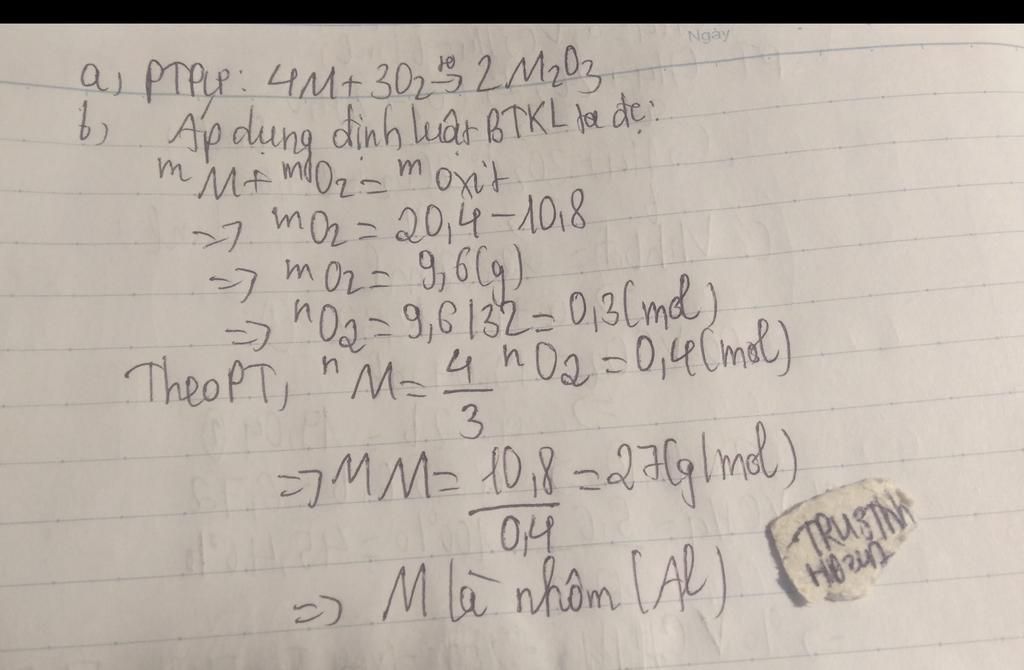 Ngày
a, PTPƯ: 4M + 3O2 tº→ 2M2O3
b, Áp dụng định luật BTKL ta đc:
mM + mO2 = m oxit
=> mO2 = 20,4 - 10,8
=> mO2 = 9,6(g)
=> nO2 = 9,6/32 = 0,3(mol)
Theo PT, nM = 4/3 nO2 = 0,4(mol)
=> MM = 10,8/0,4 = 27(g/mol)
=> M là nhôm (Al)